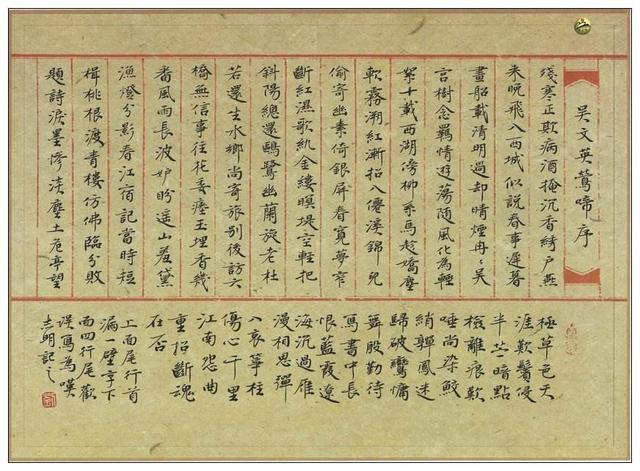 吳文英鶯啼序
殘寒正欺病酒掩沉香綉户燕
来晚飛入西城似説春事遲暮
畫船載清明過却晴煙冉冉吴
宫樹念羈情遊蕩随風化為輕
絮十載西湖傍柳系馬趁嬌塵
軟霧溯紅漸招入僊溪錦兒
偷寄幽素倚銀屏春寬夢窄
斷紅濕歌紈金縷暝堤空輕把
斜陽總還鷗鷺幽蘭旋老杜
若還生水鄉尚寄旅别後訪六
橋無信事往花委瘞玉埋香幾
番風雨長波妒盼遥山羞黛
漁燈分影春江宿記當時短
楫桃根渡青樓仿佛臨分敗
題詩淚墨慘淡塵土危亭望
極草色天
涯歎鬢侵
半苎暗點
檢離痕歎
唾尚染鮫
綃嚲鳳迷
歸破鸞慵
舞殷勤待
寫書中長
恨藍霞遼
海沉過雁
漫相思彈
入哀箏柱
傷心千里
江南怨曲
重招斷魂
在否
上面尾行首
漏一壁字下
面四行尾歡
誤寫為嘆
志明記之